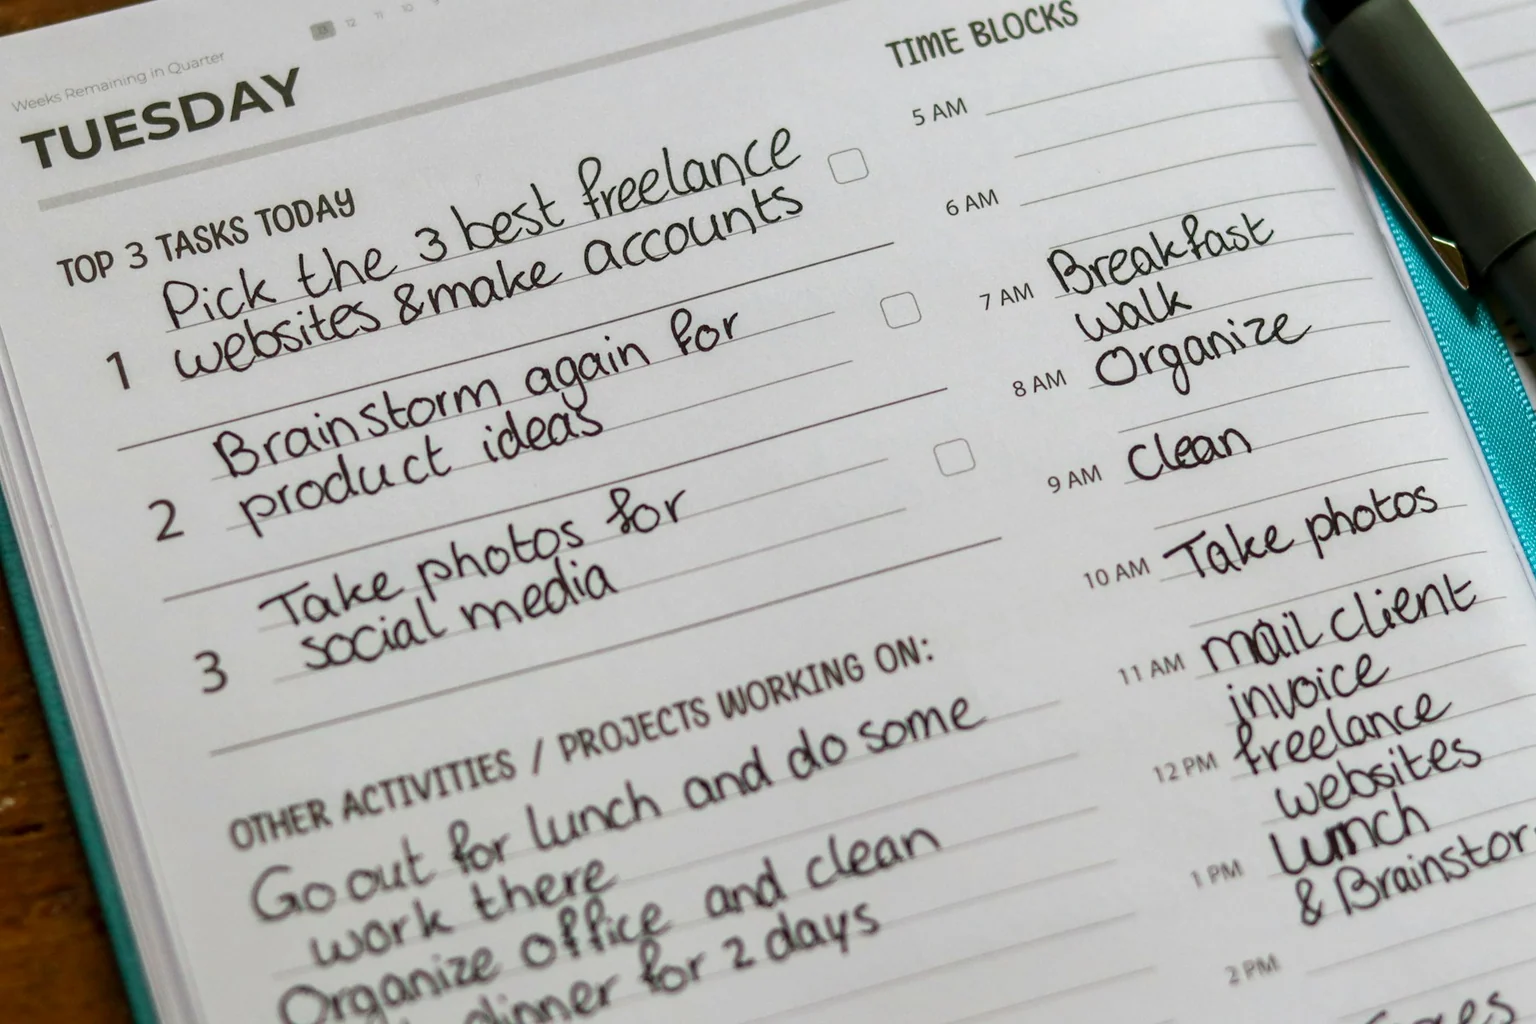 13 12 11 10 9
Weeks Remaining in Quarter
TUESDAY
TOP 3 TASKS TODAY
1 Pick the 3 best freelance
websites & make accounts
2 Brainstorm again for
product ideas
3 Take photos for
social media
OTHER ACTIVITIES / PROJECTS WORKING ON:
Go out for lunch and do some
work there
Organize office and clean
dinner for 2 days
TIME BLOCKS
5 AM
6 AM
7 AM Breakfast
walk
8 AM Organize
9 AM Clean
10 AM Take photos
11 AM mail client
invoice
12 PM freelance
websites
1 PM Lunch
& Brainstor
2 PM